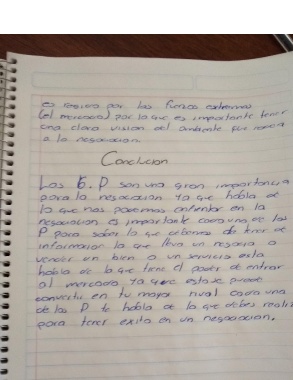 es regiera por las fuerzas externas
(el mercado) por lo que es importante tener
una clara vision del ambiente que rodea
a la negociacion.
Conclucion
Las 6.P son una gran importancia
para la negociacion ya que habla de
lo que nos podemos enfrentar en la
negociacion es importante cada una de las
P para saber lo que debemos de tener de
informacion la que lleva un negocio a
vender un bien o un servicio esta
habla de la que tiene el poder de entrar
al mercado ya que esta se puede
convertir en tu mayor rival cada una
de las P te habla de lo que debes
para tener exito en un negociacion.